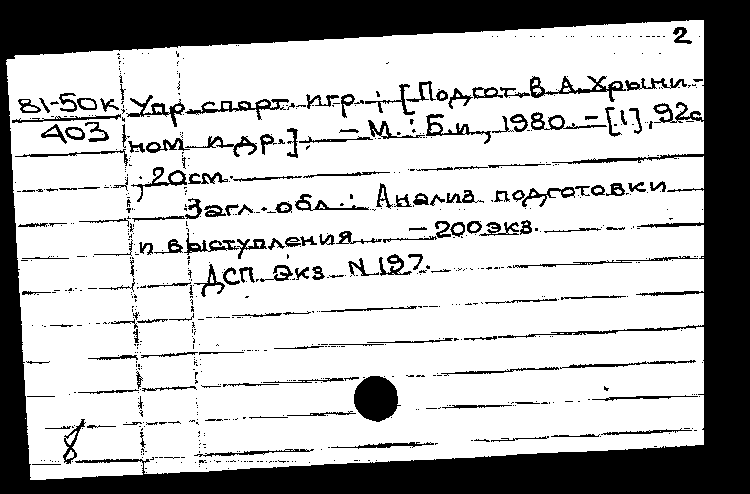 2
81-50к Упр. спорт. игр ; [Подгот. В. А. Хрыни-
403 ном и др.]. – М. : Б.и., 1980. – [1], 92с
; 20см.
Загл. обл.: Анализ подготовки
и выступления ... – 200экз.
ДСП. Экз. N 197.
8